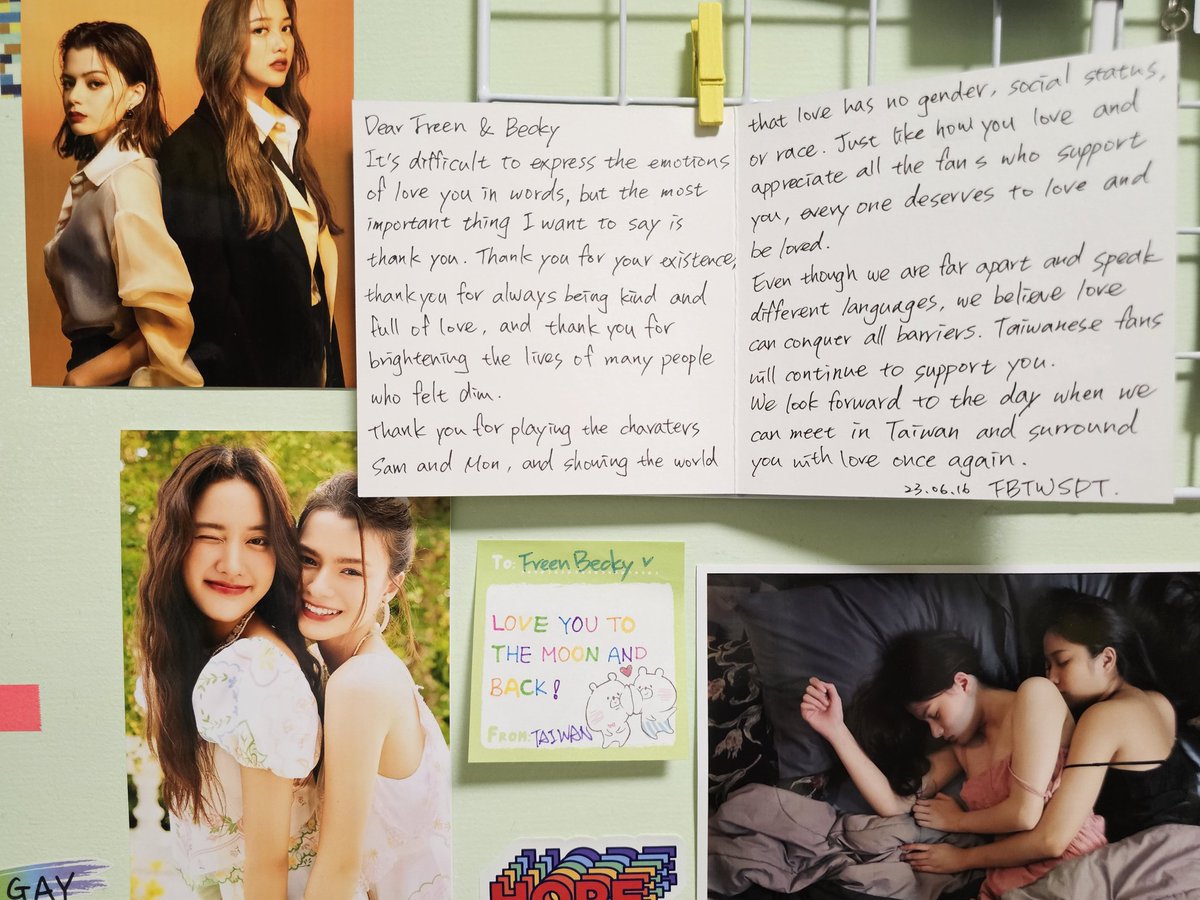 Dear Freen & Becky
It's difficult to express the emotions
of love you in words, but the most
important thing I want to say is
thank you. Thank you for your existence,
thank you for always being kind and
full of love, and thank you for
brightening the lives of many people
who felt dim.
Thank you for playing the charaters
Sam and Mon, and showing the world
that love has no gender, social status,
or race. Just like how you love and
appreciate all the fans who support
you, every one deserves to love and
be loved.
Even though we are far apart and speak
different languages, we believe love
can conquer all barriers. Taiwanese fans
will continue to support you.
We look forward to the day when we
can meet in Taiwan and surround
you with love once again.
23.06.16 FBTWSPT.
To: Freen Becky
LOVE YOU TO
THE MOON AND
BACK!
FROM: TAIWAN
GAY
HOPE